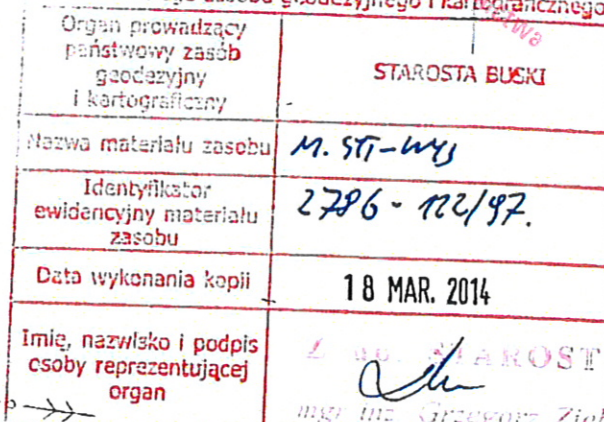 zasobu geodezyjnego i kartograficznego
Organ prowadzący
państwowy zasób
geodezyjny
i kartograficzny
STAROSTA BUSKI
Nazwa materiału zasobu
M. SYT-WYS
Identyfikator
ewidencyjny materiału
zasobu
2786-122/97.
Data wykonania kopii
18 MAR. 2014
Imię, nazwisko i podpis
osoby reprezentującej
organ
Z up. STAROST
mgr inż. Grzegorz